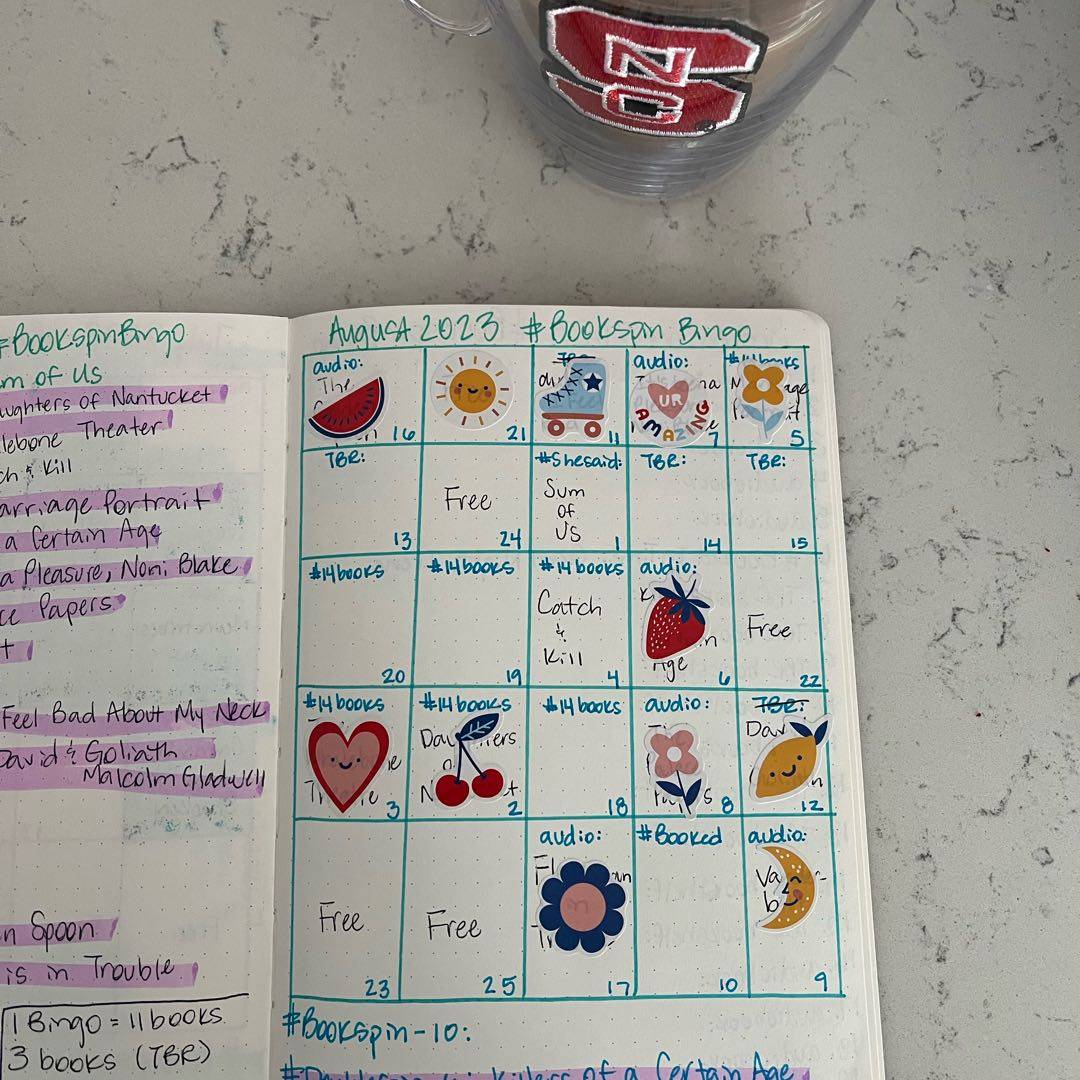 NC
#BookspinBingo
m of Us
aughters of Nantucket
lebone Theater
ch & Kill
arriage Portrait
a Certain Age
a Pleasure, Noni Blake
ce Papers
t
Feel Bad About My Neck
David & Goliath
Malcolm Gladwell
n Spoon
is in Trouble
1 Bingo = 11 books
3 books (TBR)
August 2023 #Bookspin Bingo
audio:
The
16
21
TBR
11
audio:
UR
AMAZING
7
#14books
5
TBR:
13
Free
24
#Shesaid:
Sum
of
Us
1
TBR:
14
TBR:
15
#14books
20
#14books
19
#14books
Catch
&
Kill
4
audio:
Age
6
Free
22
#14books
3
#14books
2
#14books
18
audio:
8
TBR:
Dav
12
Free
23
Free
25
audio:
17
#Booked
10
audio:
Va
b
9
#Bookspin-10:
Killers of a Certain Age